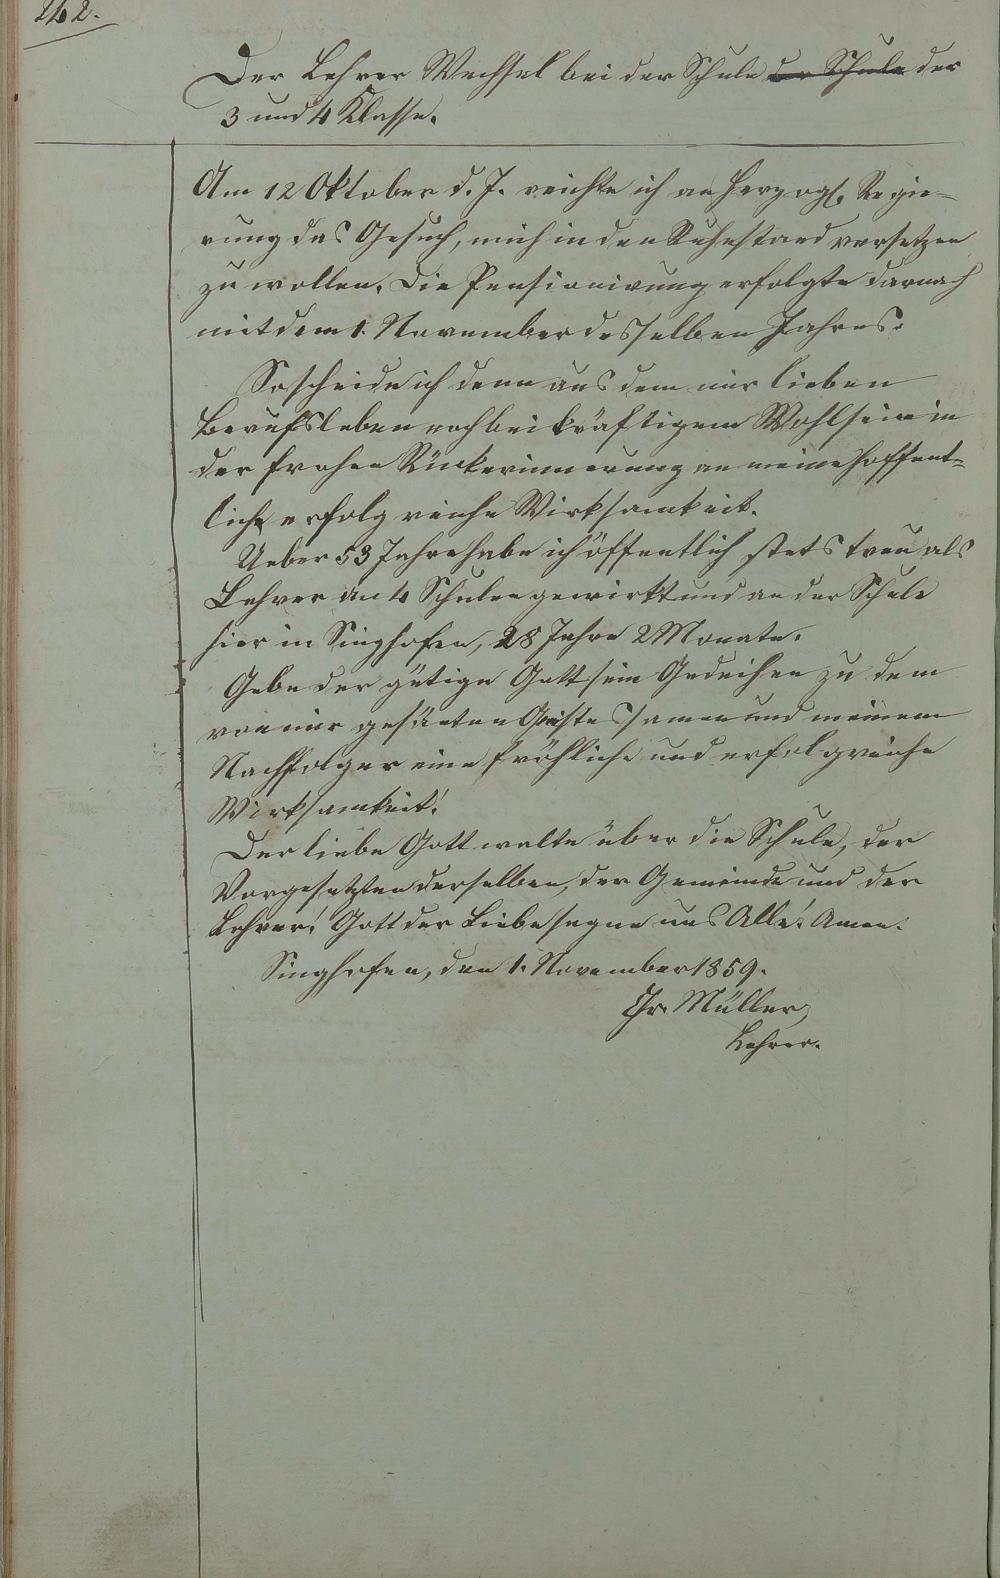 262.
Der Lehrer Wechsel bei der Schule der Schule der
3 und 4 Klasse.
Am 12 Oktober d. J. reichte ich an Herzogl. Regie-
rung das Gesuch, mich in den Ruhestand versetzen
zu wollen. Die Pensionirung erfolgte darnach
mit dem 1. November desselben Jahres.
So scheide ich denn aus dem mir lieben
Berufsleben noch bei kräftigem Wohlsein in
der frohen Rückerinnerung an meine hoffent-
liche erfolgreiche Wirksamkeit.
Ueber 53 Jahre habe ich öffentlich stets treu als
Lehrer an 4 Schulen gewirkt und an der Schule
hier in Singhofen, 28 Jahre 2 Monate.
Gebe der gütige Gott sein Gedeihen zu dem
von mir gesäeten Geistessamen und meinem
Nachfolger eine fröhliche und erfolgreiche
Wirksamkeit!
Der liebe Gott walte über die Schule, der
Vorgesetzten derselben, der Gemeinde und der
Lehrer! Gott der Liebe segne uns Alle! Amen.
Singhofen, den 1. November 1859.
Chr. Müller,
Lehrer.